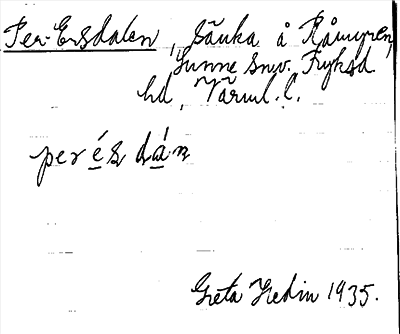 Per-Ersdalen, sänka å Råmyren,
Sunne snv. Fryksd.
hd, Värml. l.
perés dán
Greta Hedin 1935.